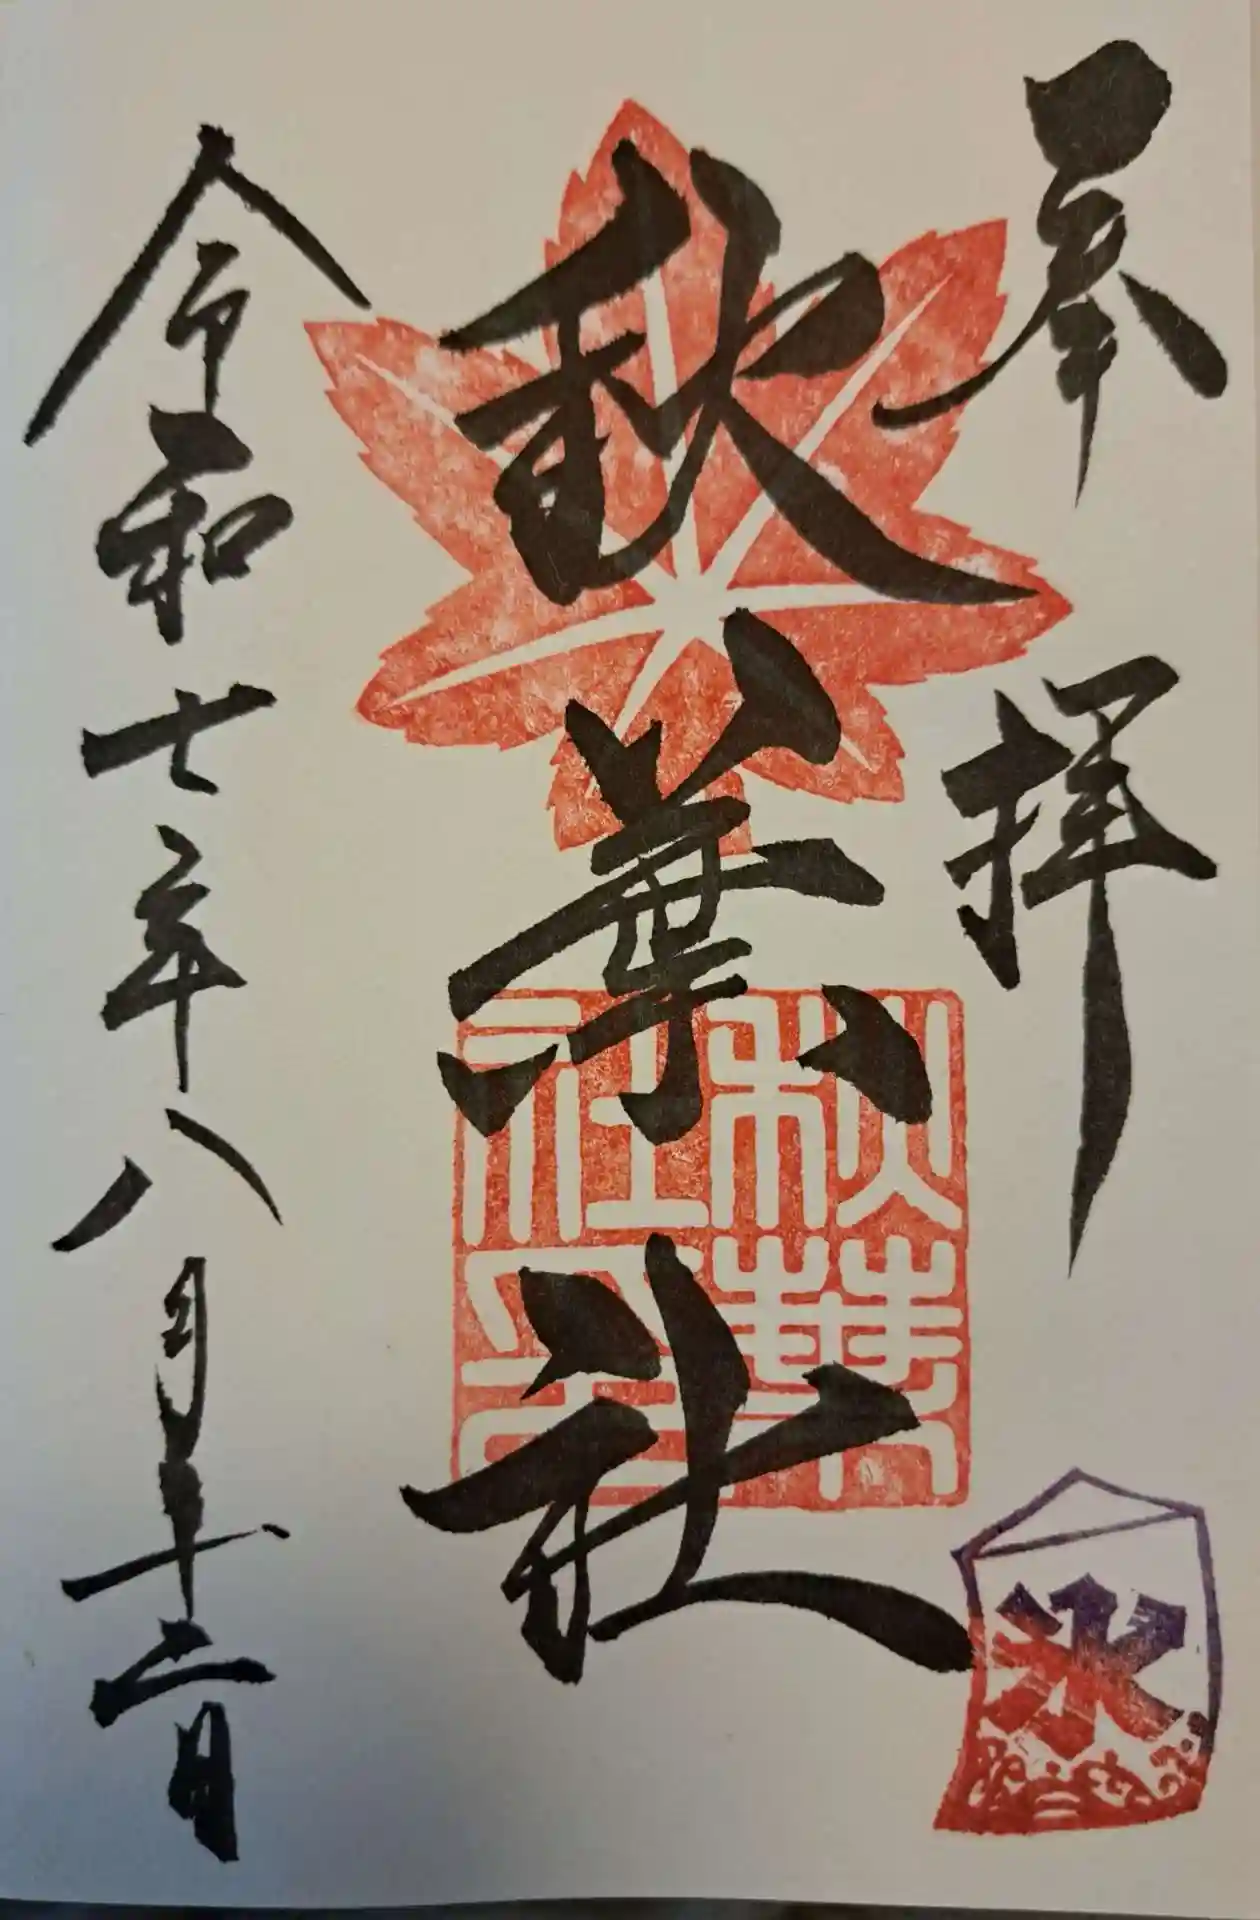 奉拝
秋葉社
秋葉社印
氷
令和七年八月十二日